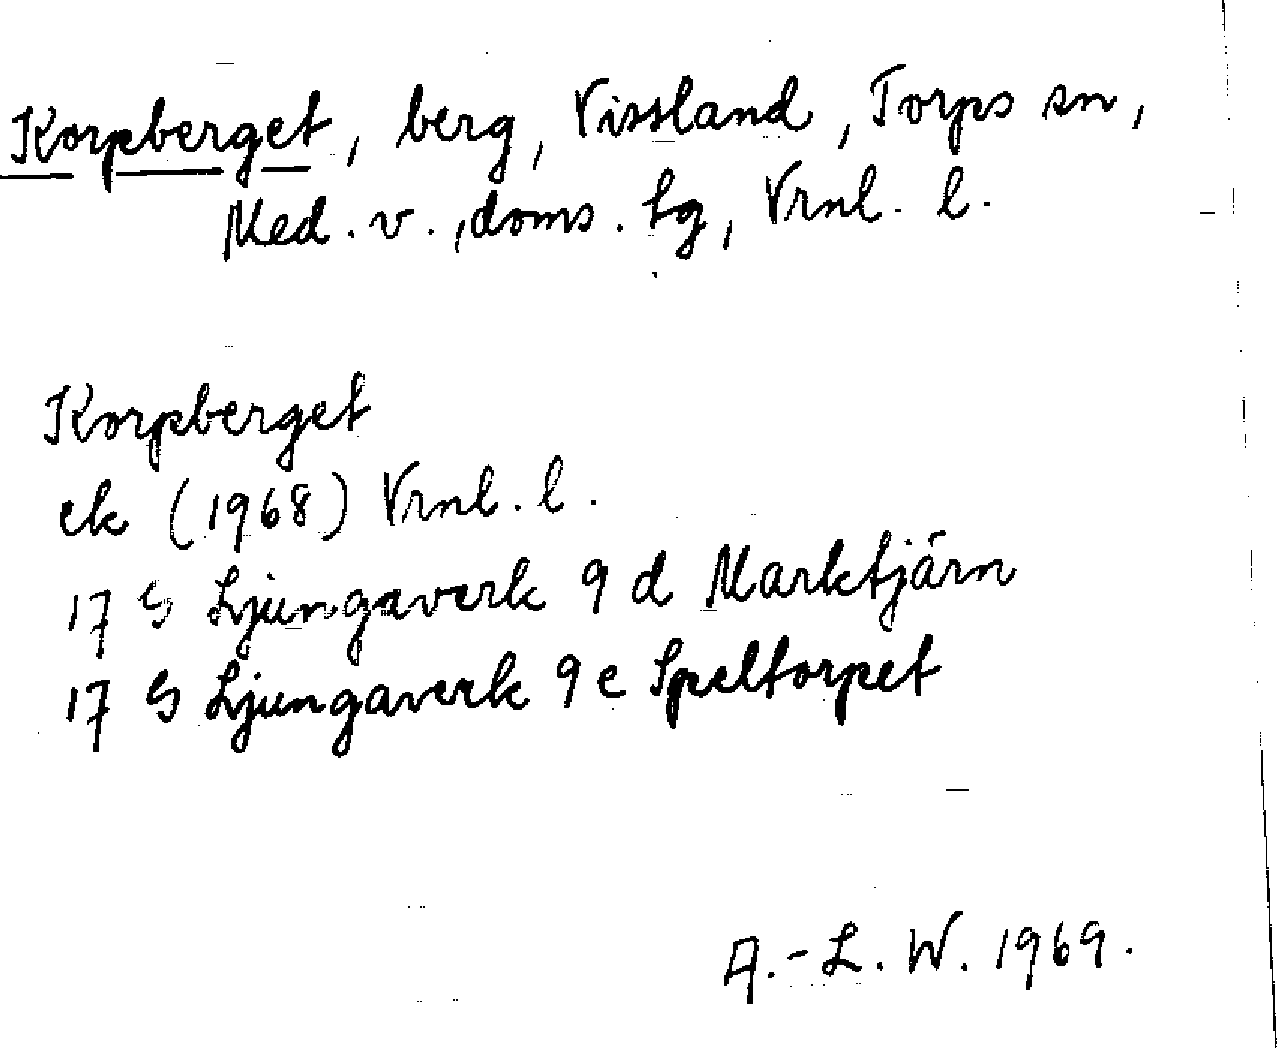 Korpberget, berg, Vissland, Torps sn,
Med. v., doms. tg, Vrnl. l.
Korpberget
ek (1968) Vrnl. l.
17 G Ljungaverk 9 d Marktjärn
17 G Ljungaverk 9 e Speltorpet
A.-L. W. 1969.